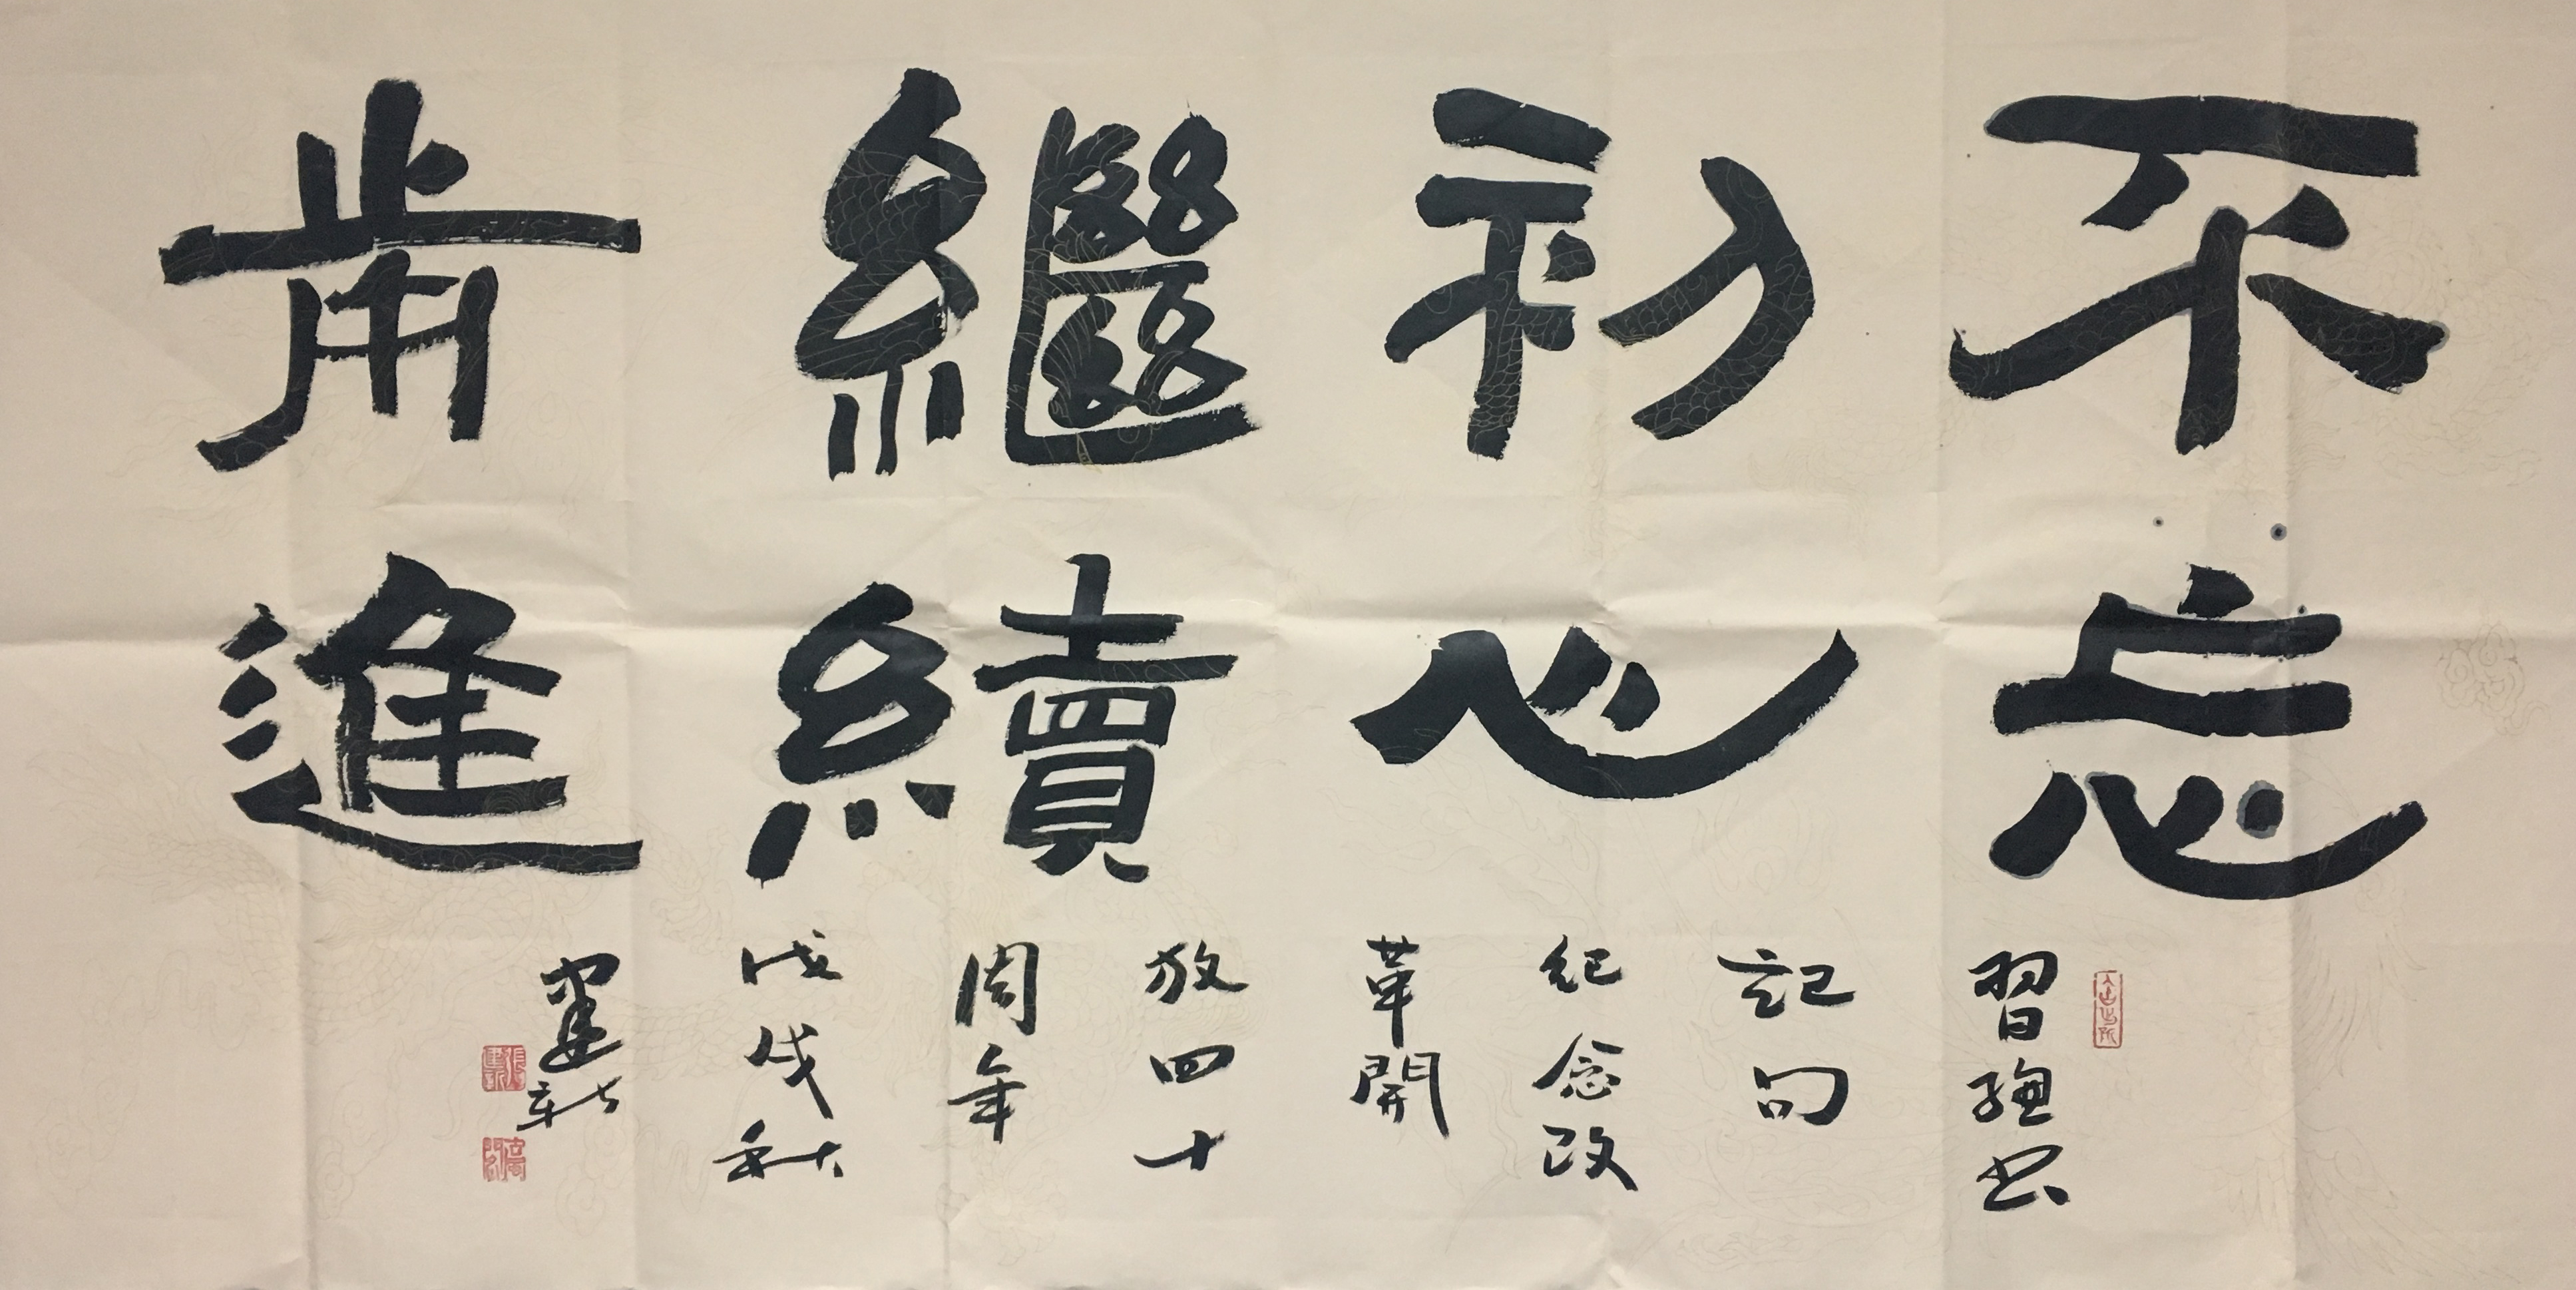 不忘
初心
繼續
前進
習總書
記句
紀念改
革開
放四十
周年
戊戌秋